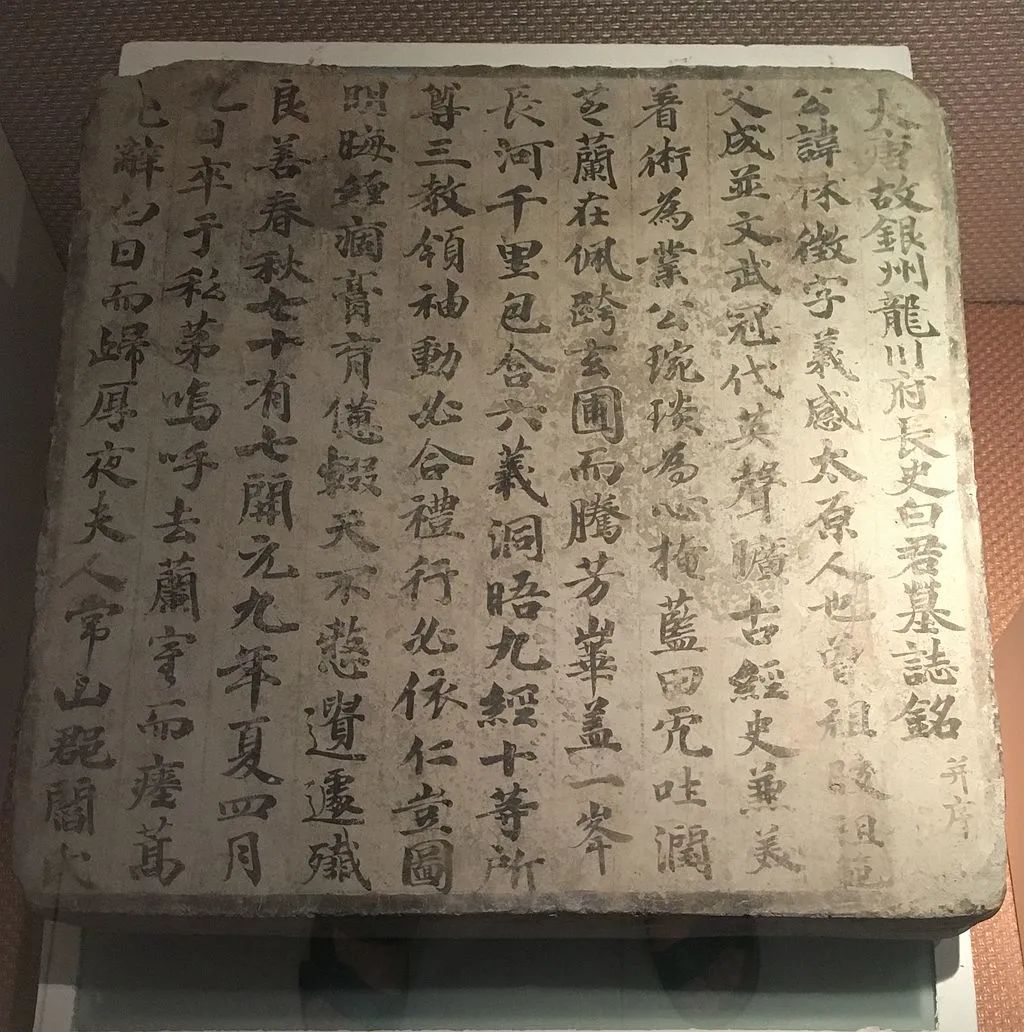 大唐故銀州龍川府長史白君墓誌銘 并序
公諱休徵字義感太原人也曾祖陵祖
父成並文武冠代英聲曠古經史兼美
著術為業公琬琰為心掩藍田而吐潤
芝蘭在佩跨玄圃而騰芳華蓋一岑
長河千里包含六義洞晤九經十等所
尊三教領袖動必合禮行必依仁豈圖
明晦纏痾膏肓儵輟天不憖遺遽殲
良善春秋七十有七開元九年夏四月
九日卒于私苐嗚呼去蘭室而瘞蒿
辭白日而歸厚夜夫人常山郡閻氏